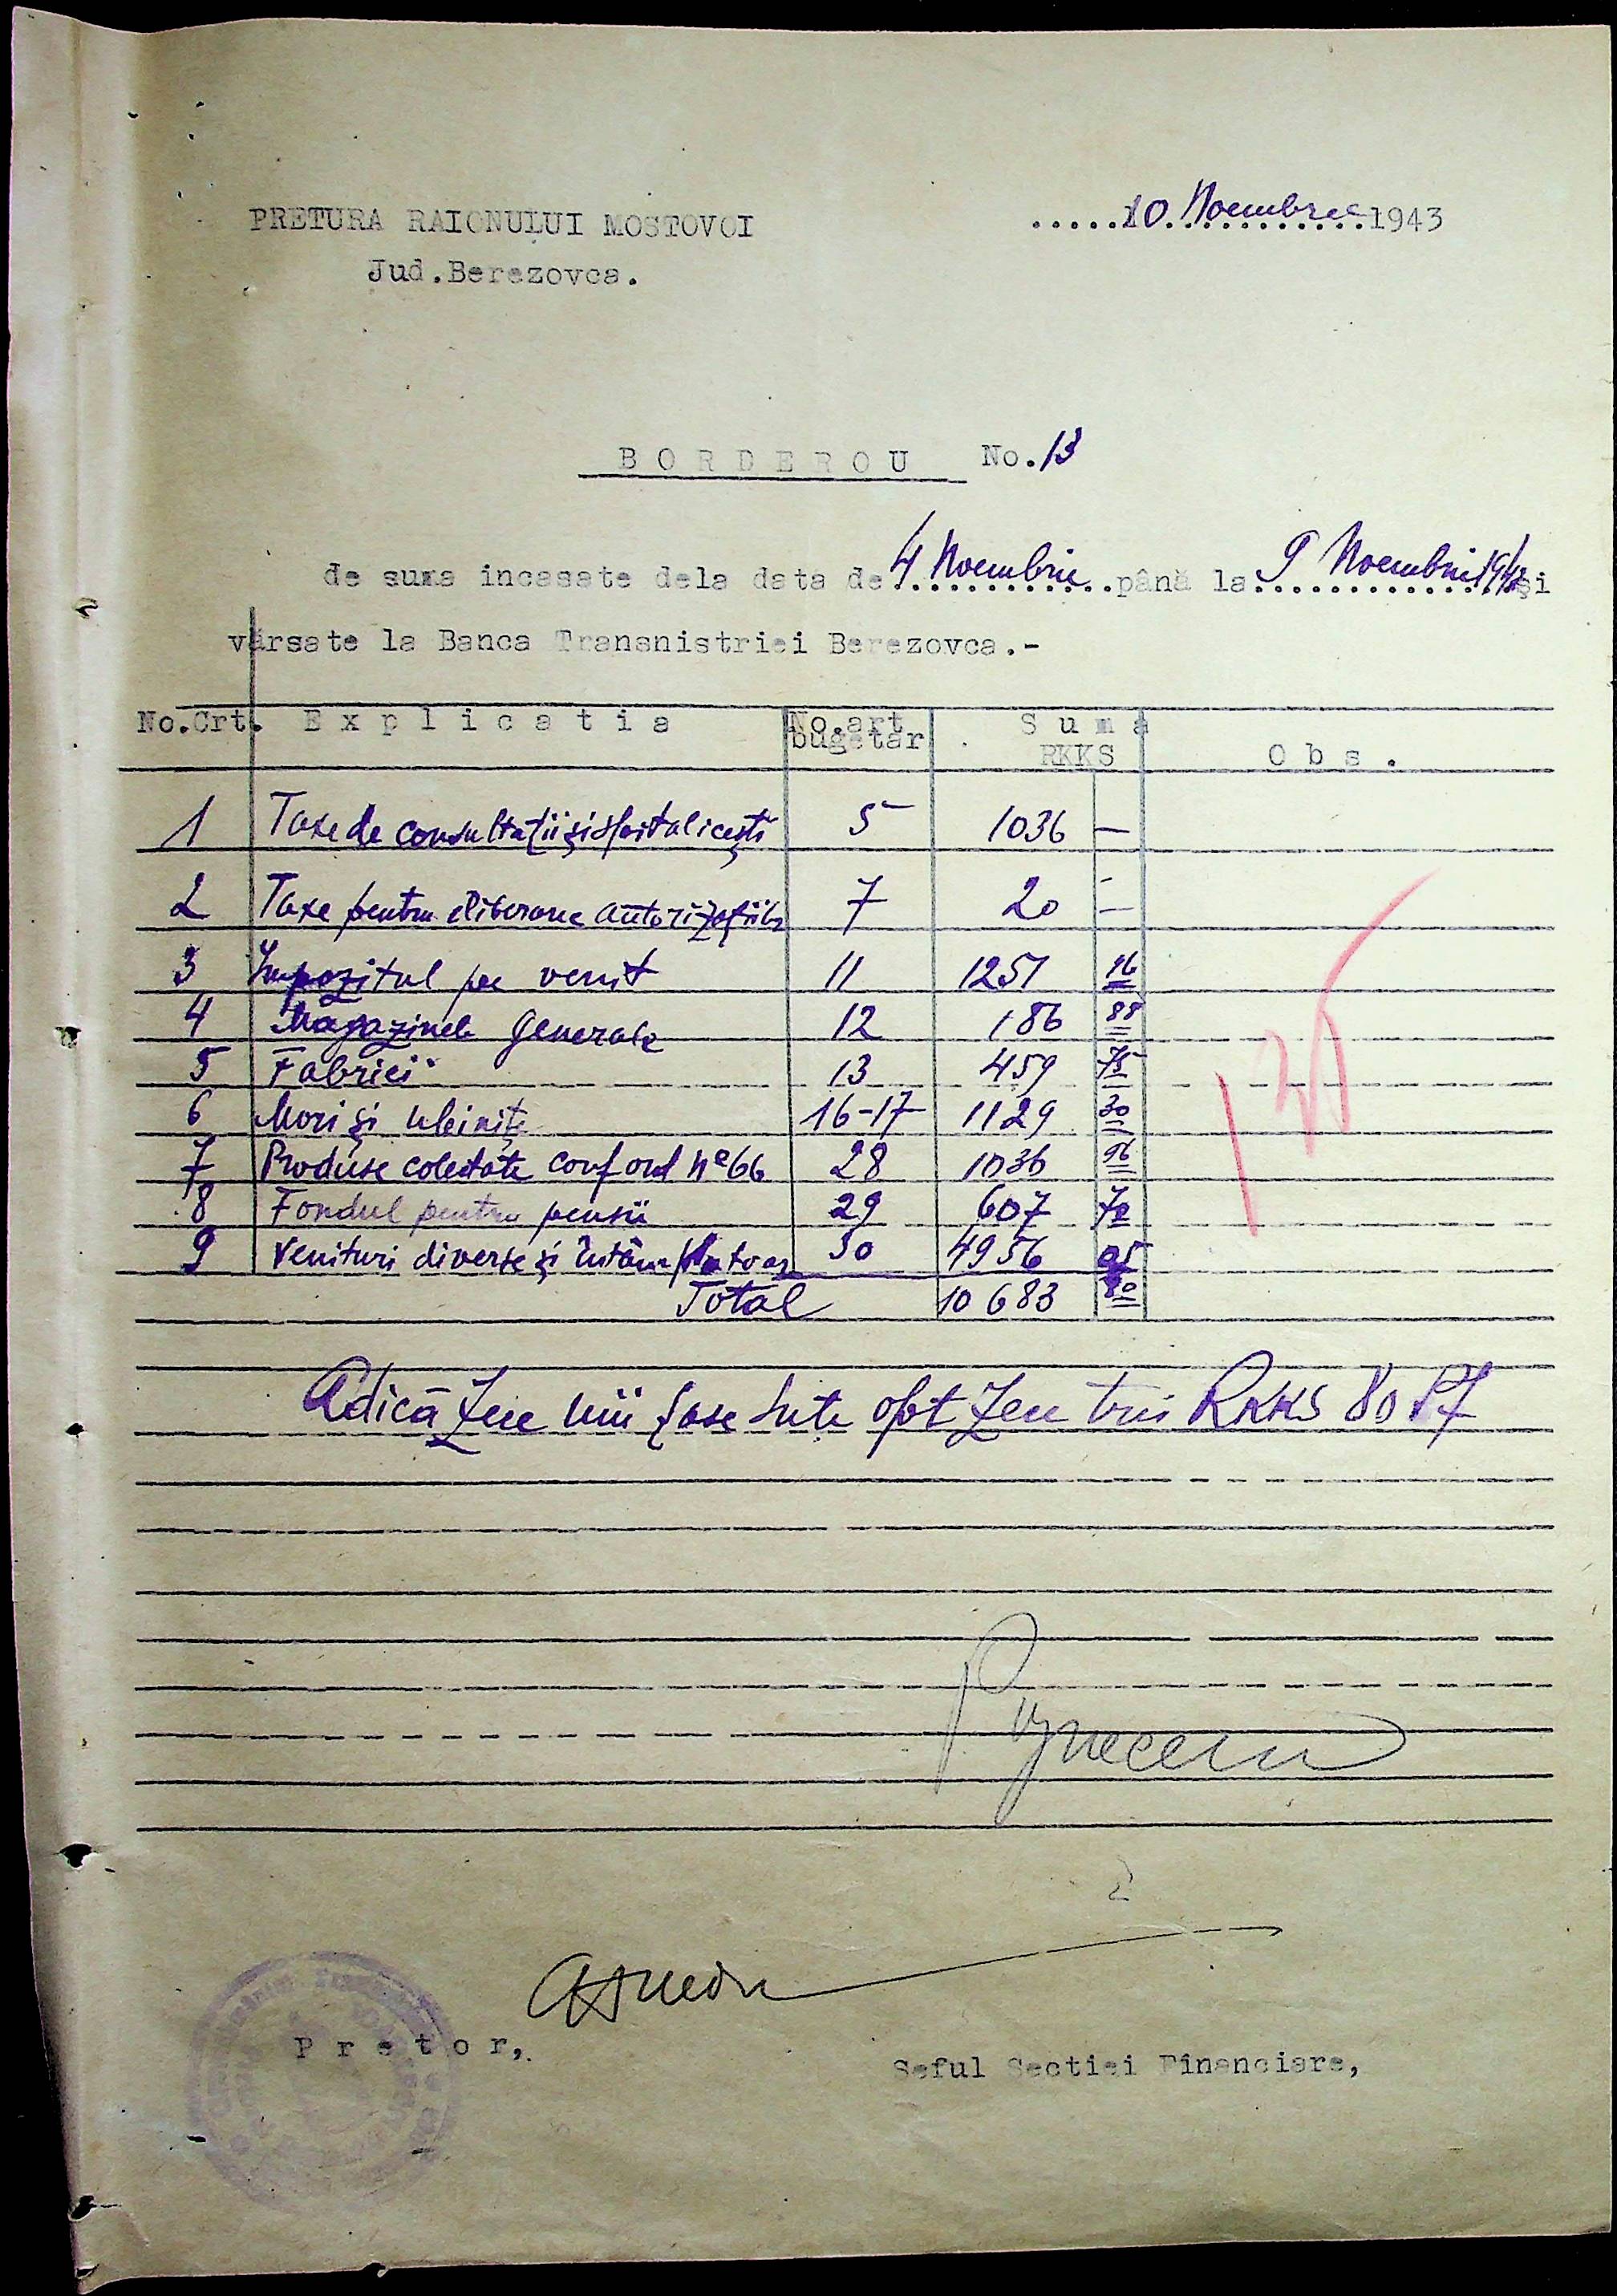 PRETURA RAIONULUI MOSTOVOI
.....10 Noembrie 1943
Jud.Berezovca.
BORDEROU No.13
de suma incasate dela data de 4 Noembrie până la 9 Noembrie 1943 și
vărsate la Banca Transnistriei Berezovca.-
No.Crt. Explicatia No.art bugetar Suma RKKS Obs.
1 Taxe de consultații și spitalicești 5 1036 —
2 Taxe pentru eliberare autorizațiilor 7 20 —
3 Impozitul pe venit 11 1251 16
4 Magazinele generale 12 186 88
5 Fabrici 13 459 75
6 Mori și uleinițe 16-17 1129 30
7 Produse colectate conf ord No 66 28 1036 96
8 Fondul pentru pensii 29 607 70
9 Venituri diverse și întâmplătoare 30 4956 05
Total 10 683 80
Adică zece mii șase sute opt zeci trei RKKS 80 Pf
Pretor,
Seful Sectiei Financiare,